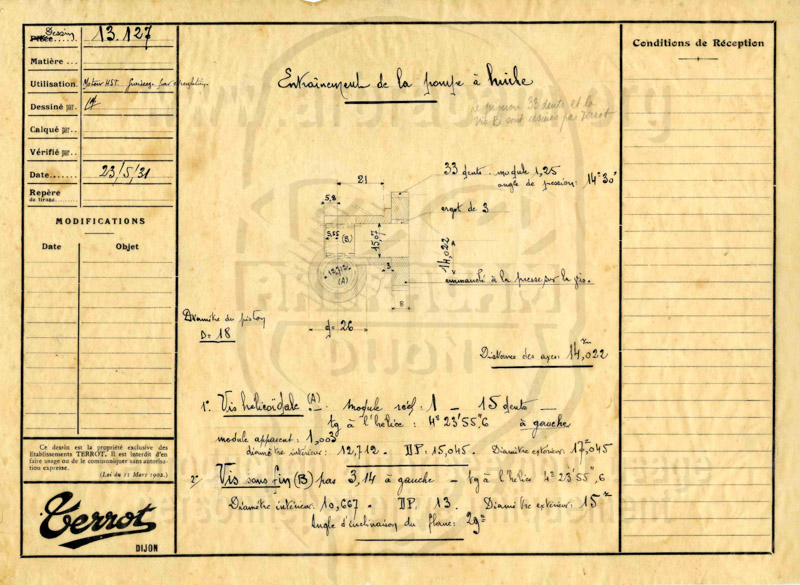 Dessin
Pièce..... 13.127
Matière ...
Utilisation. Moteur HST. Graissage par circulation
Dessiné par.
Calqué par..
Vérifié par..
Date....... 23/5/31
Repère
de tirage.
MODIFICATIONS
Date Objet
Ce dessin est la propriété exclusive des
Etablissements TERROT. Il est interdit d'en
faire usage ou de le communiquer sans autorisa-
tion expresse.
(Loi du 11 Mars 1902.)
Terrot
DIJON
Entraînement de la pompe à huile
le pignon 33 dents et la
vis B sont dessinés par Terrot
33 dents - module 1,25
angle de pression: 14°30'
ergot de 3
emmanché à la presse sur la vis.
21
5,8
5,55
(B)
15,07
14,022
12,712
(A)
3
8
Diamètre du piston
D= 18
d= 26
Distance des axes: 14,022
1°. Vis hélicoïdale (A). module réel: 1 - 15 dents -
tg à l'hélice: 4° 23' 55",6 à gauche
module apparent: 1,003
diamètre intérieur: 12,712 - DP: 15,045. Diamètre extérieur: 17,045
2° Vis sans fin (B) pas 3,14 à gauche - tg à l'hélice 4° 23' 55",6
Diamètre intérieur: 10,667 - DP 13. Diamètre extérieur: 15
Angle d'inclinaison du flanc: 29°
Conditions de Réception